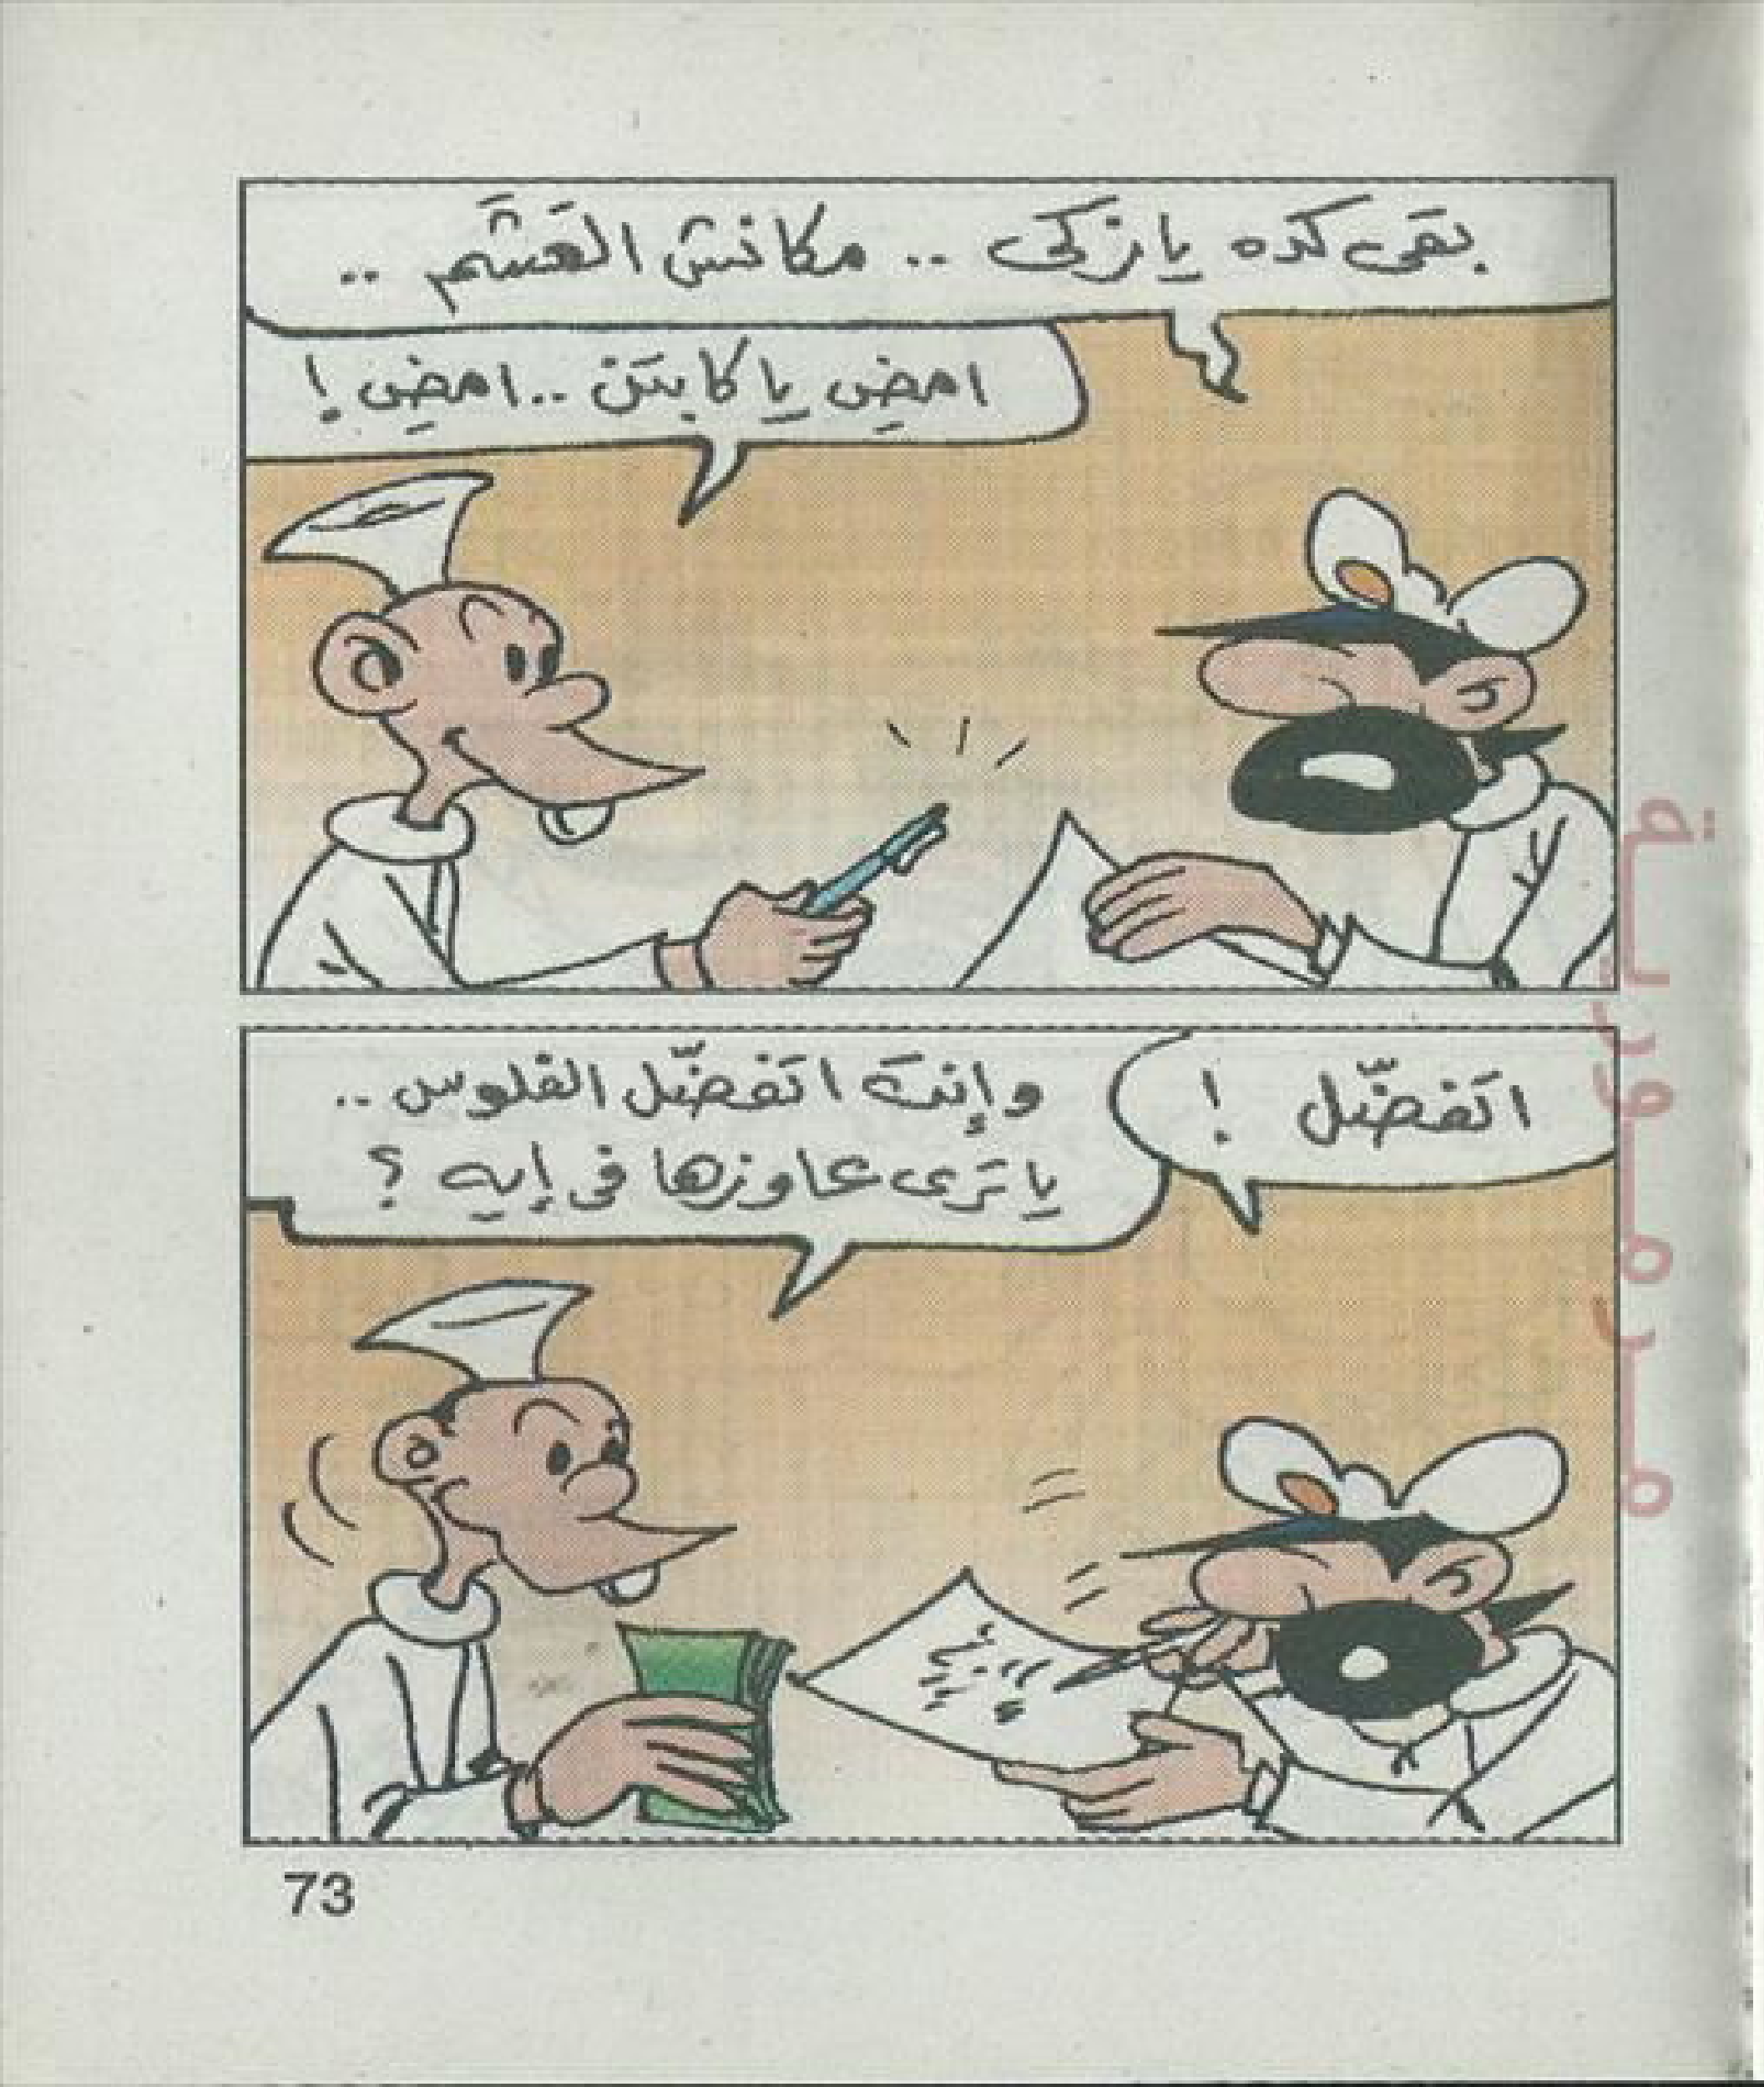 بقى كده يا زكى .. مكانش العَشَم ..
امضِى يا كابتن .. امضِى !
اتفضّل !
وإنتَ اتفضّل الفلوس ..
يا تَرى عاوزها فى إيه ؟
73